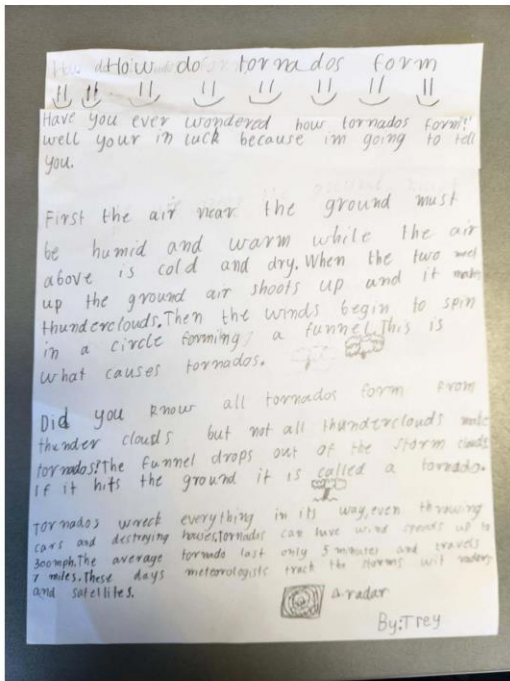 How do tornados form
Have you ever wondered how tornados form?
well your in luck because im going to tell
you.
First the air near the ground must
be humid and warm while the air
above is cold and dry. When the two meet
up the ground air shoots up and it makes
thunderclouds. Then the winds begin to spin
in a circle forming a funnel. This is
what causes tornados.
Did you know all tornados form from
thunder clouds but not all thunderclouds make
tornados? The funnel drops out of the storm clouds
If it hits the ground it is called a tornado.
Tornados wreck everything in its way, even throwing
cars and destroying Tornados can have wind speeds up to
300mph. The average tornado last only 5 minutes and travels
7 miles. These days meteorologists track the storms wit radars
and satellites.
a radar
By: Trey